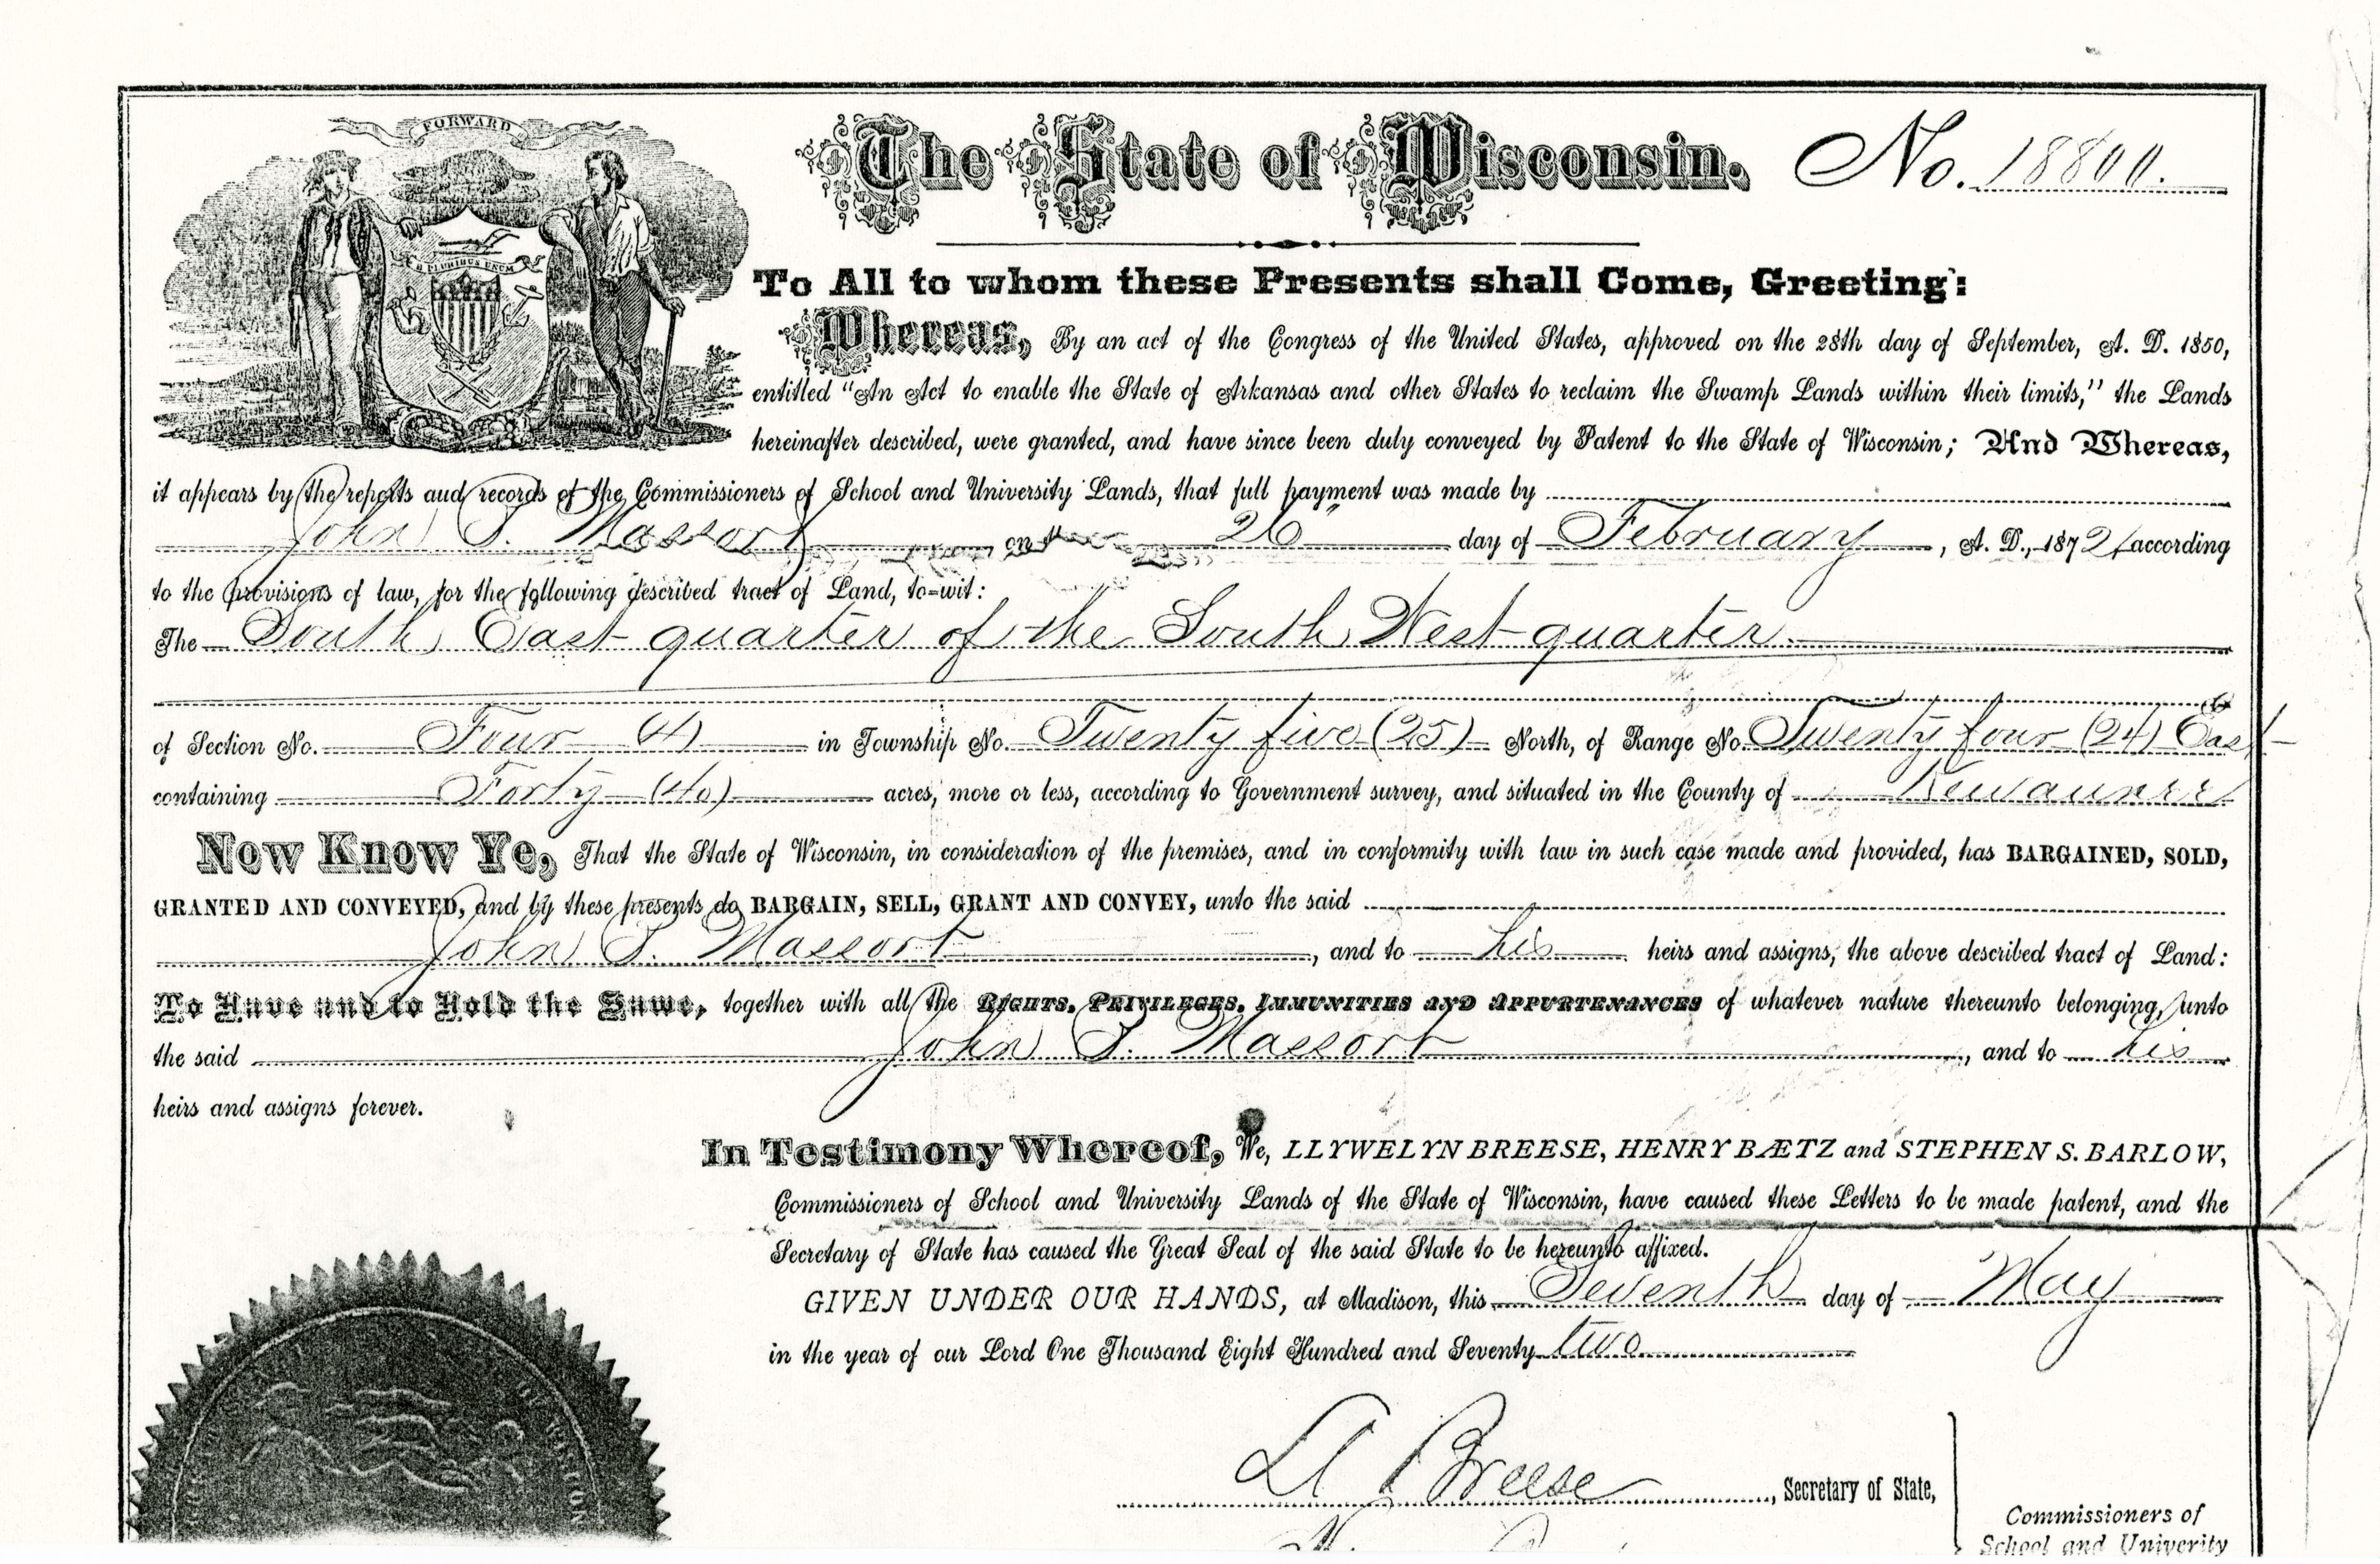 FORWARD
E PLURIBUS UNUM
The State of Wisconsin. No. 18800.
To All to whom these Presents shall Come, Greeting:
Whereas, By an act of the Congress of the United States, approved on the 28th day of September, A. D. 1850,
entitled "An Act to enable the State of Arkansas and other States to reclaim the Swamp Lands within their limits," the Lands
hereinafter described, were granted, and have since been duly conveyed by Patent to the State of Wisconsin; And Whereas,
it appears by the reports and records of the Commissioners of School and University Lands, that full payment was made by
John S. Massort on the 26" day of February, A. D., 1872, according
to the provisions of law, for the following described tract of Land, to-wit:
The South East quarter of the South West quarter.
of Section No. Four (4) in Township No. Twenty five (25) North, of Range No. Twenty four (24) East
containing Forty (40) acres, more or less, according to Government survey, and situated in the County of Kewaunee
Now Know Ye, That the State of Wisconsin, in consideration of the premises, and in conformity with law in such case made and provided, has BARGAINED, SOLD,
GRANTED AND CONVEYED, and by these presents do BARGAIN, SELL, GRANT AND CONVEY, unto the said
John S. Massort, and to his heirs and assigns, the above described tract of Land:
To Have and to Hold the Same, together with all the RIGHTS, PRIVILEGES, IMMUNITIES AND APPURTENANCES of whatever nature thereunto belonging, unto
the said John S. Massort, and to his
heirs and assigns forever.
In Testimony Whereof, We, LLYWELYN BREESE, HENRY BÆTZ and STEPHEN S. BARLOW,
Commissioners of School and University Lands of the State of Wisconsin, have caused these Letters to be made patent, and the
Secretary of State has caused the Great Seal of the said State to be hereunto affixed.
GIVEN UNDER OUR HANDS, at Madison, this Seventh day of May
in the year of our Lord One Thousand Eight Hundred and Seventy two
Ll Breese, Secretary of State,
Commissioners of
School and Univerity